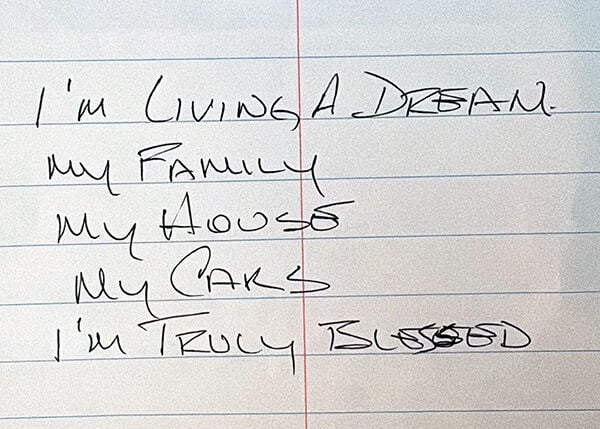 I'm LIVING A DREAM.
My FAMILY
My HOUSE
My CARS
I'm TRULY BLESSED